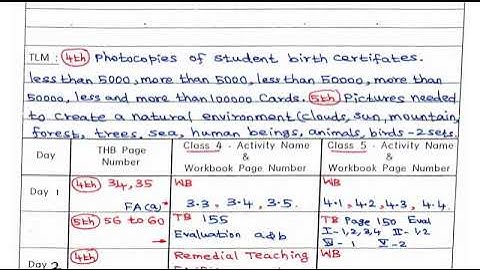 TLM : 4th Photocopies of student birth certifates.
less than 5000, more than 5000, less than 50000, more than
50000, less and more than 100000 Cards. 5th Pictures needed
to create a natural environment (clouds, sun, mountain,
forest, trees, sea, human beings, animals, birds - 2 sets.
Day
THB Page
Number
Class 4 - Activity Name
&
Workbook Page Number
Class 5 - Activity Name
&
Workbook Page Number
Day 1
4th 34, 35
FA(a)
WB
3.3, 3.4, 3.5.
WB
4.1, 4.2, 4.3, 4.4.
5th 56 to 60
TB 155
Evaluation a&b
TB Page 150 Eval
I-1,2,3,4 II-1,2
VI-1 V-2
Day 2
4th
Remedial Teaching
WB